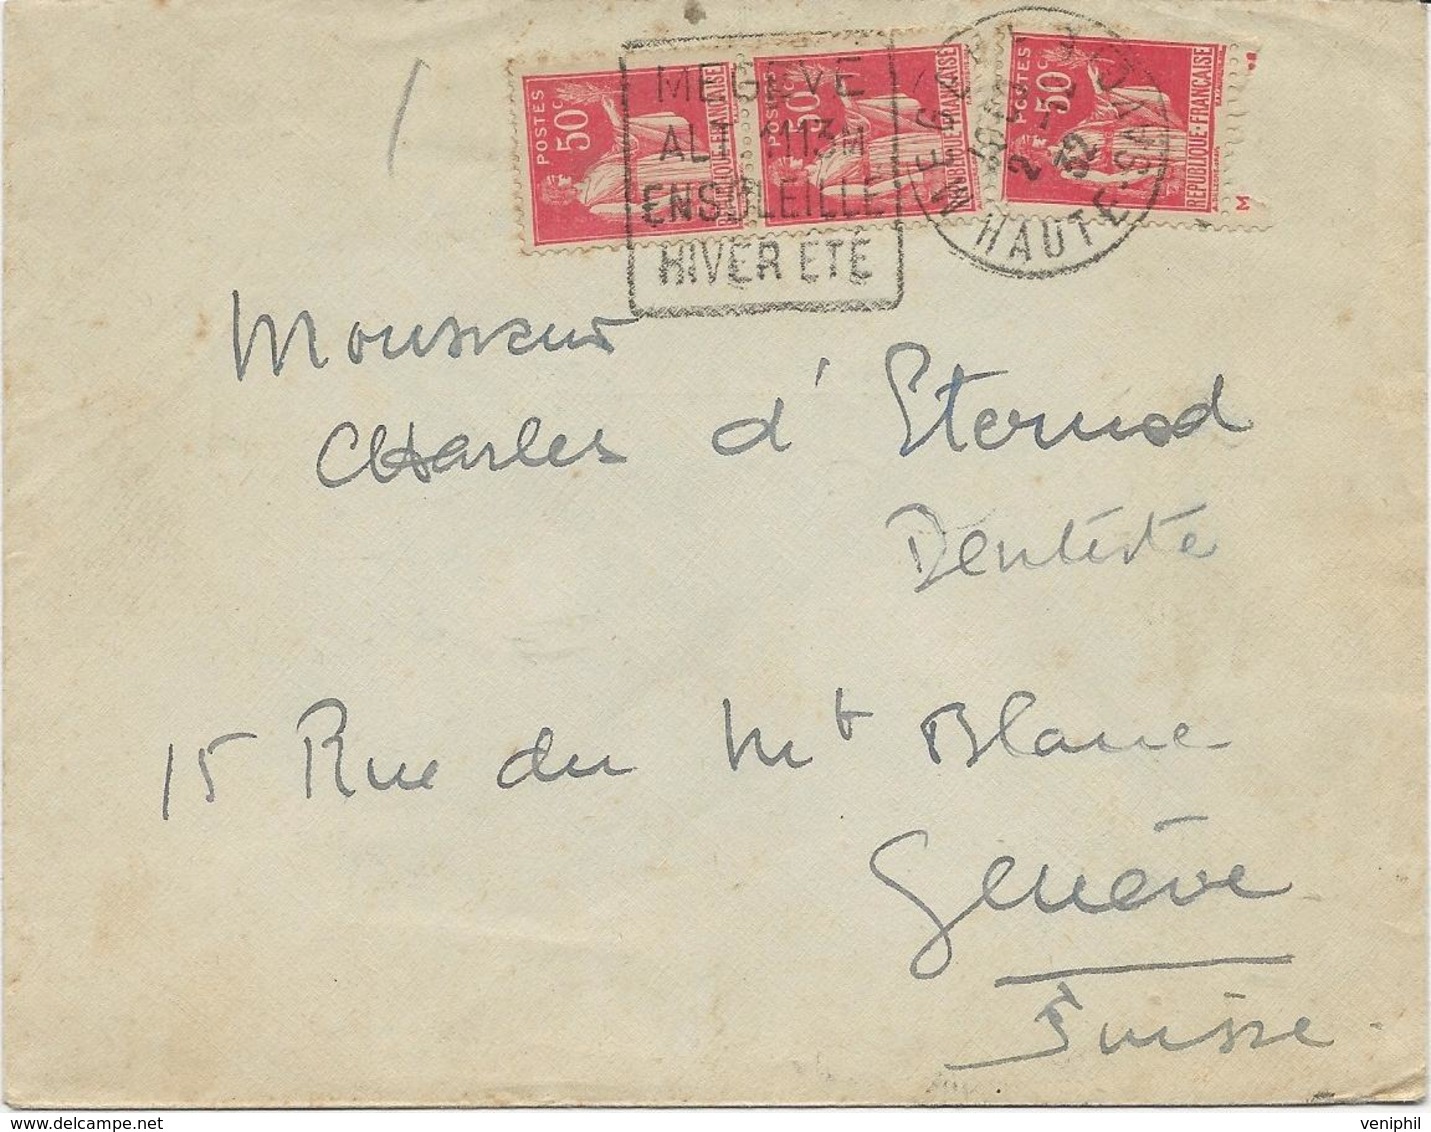 POSTES 50c
POSTES 50c
POSTES 50c
REPUBLIQUE·FRANÇAISE
REPUBLIQUE·FRANÇAISE
REPUBLIQUE·FRANÇAISE
M
MEGEVE
ALT 1113M
ENSOLEILLÉ
HIVER ETÉ
MEGEVE
HAUTE-SAVOIE
2 -2
32
Monsieur
Charles d'Eternod
Dentiste
15 Rue du Mt Blanc
Genève
Suisse.
veniphil